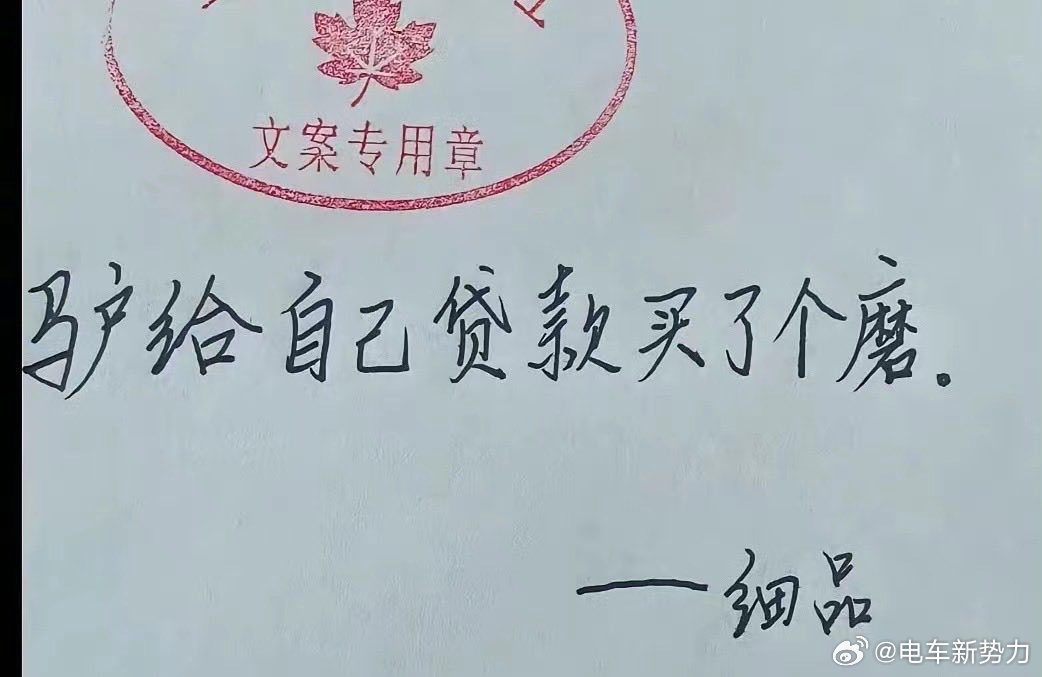 文案专用章
驴给自己贷款买了个磨。
——细品
@电车新势力